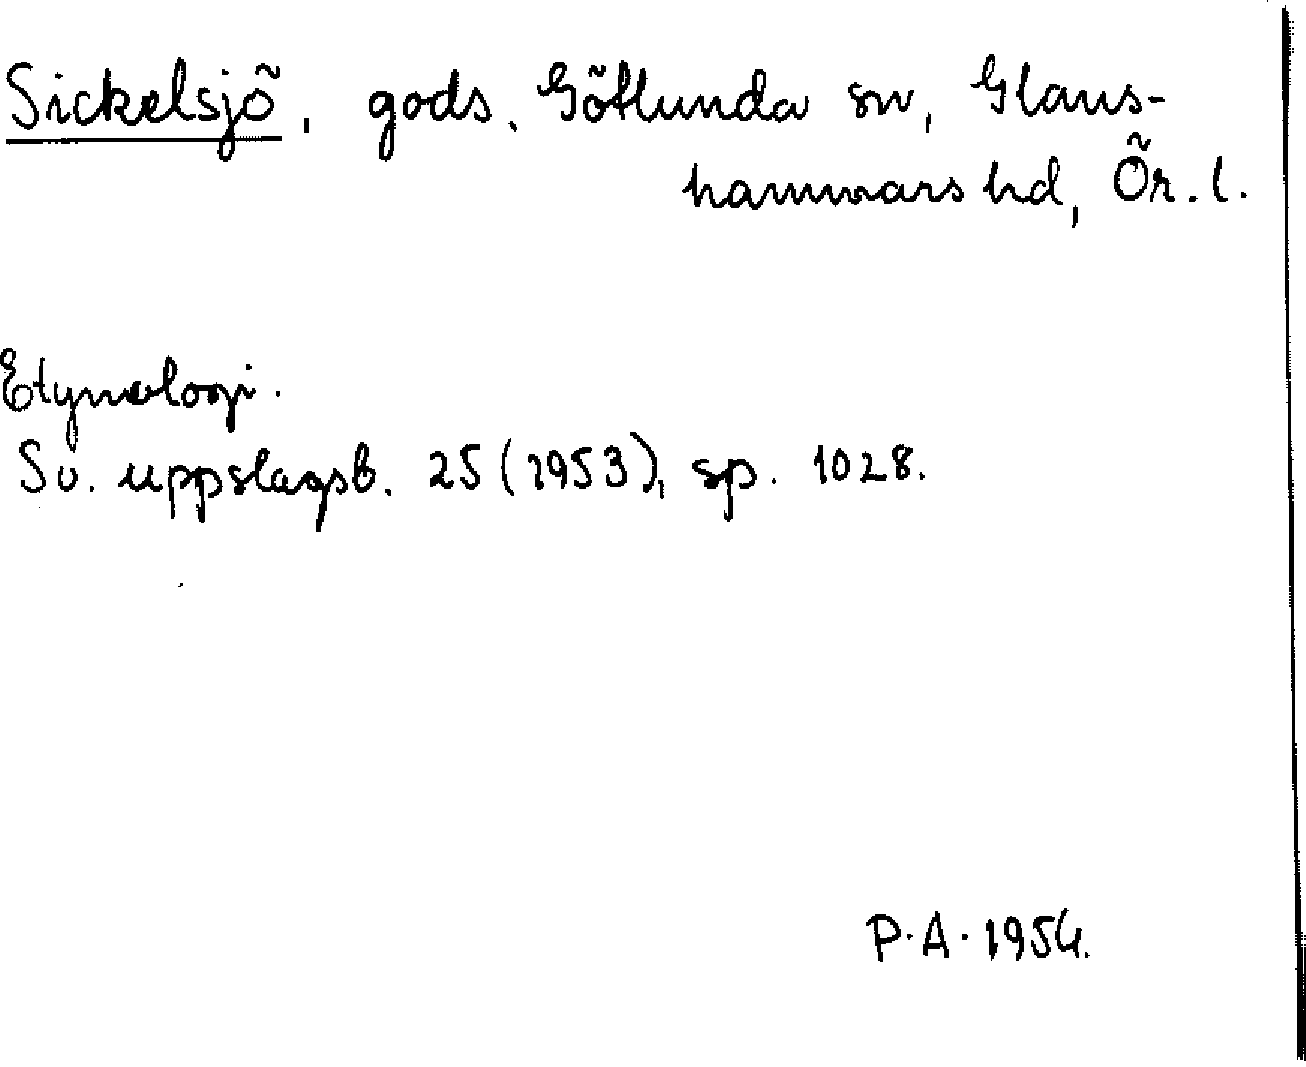 Sickelsjö, gods, Götlunda sn, Glans-
hammars hd, Ör. l.
Etymologi.
Sv. uppslagsb. 25 (1953), sp. 1028.
P.A. 1954.